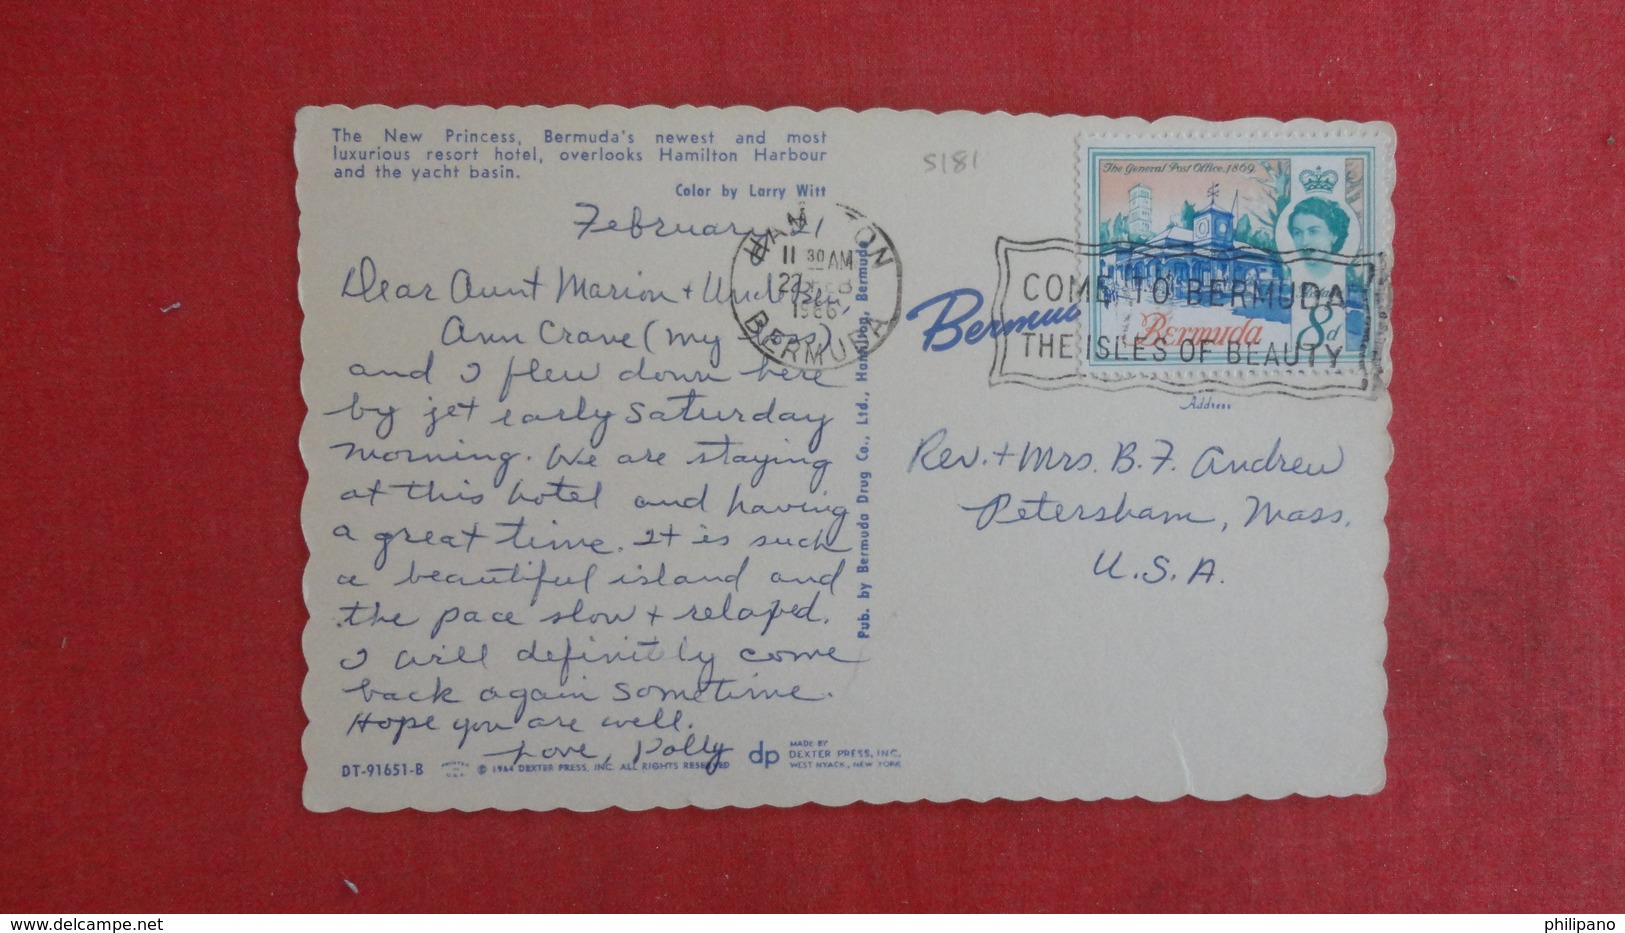 The New Princess, Bermuda's newest and most
luxurious resort hotel, overlooks Hamilton Harbour
and the yacht basin.
Color by Larry Witt
5181
February 21
Dear Aunt Marion + Uncle Ben,
Ann Crane (my boss)
and I flew down here
by jet early Saturday
morning. We are staying
at this hotel and having
a great time. It is such
a beautiful island and
the pace slow + relaxed.
I will definitely come
back again sometime.
Hope you are well.
Love, Polly
DT-91651-B
PRINTED IN U.S.A.
© 1964 DEXTER PRESS, INC. ALL RIGHTS RESERVED
dp
MADE BY
DEXTER PRESS, INC.
WEST NYACK, NEW YORK
Pub. by Bermuda Drug Co., Ltd., Hamilton, Bermuda
HAMILTON
11 30 AM
22 FEB
1966
BERMUDA
Bermuda
COME TO BERMUDA
THE ISLES OF BEAUTY
The General Post Office, 1869
Bermuda
8d
Address
Rev. + Mrs. B. F. Andrew
Petersham, Mass.
U.S.A.
delcampe.net
philipano